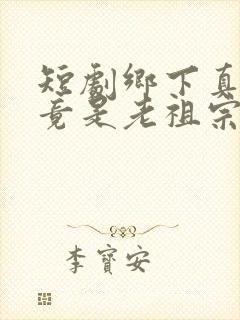 短劇鄉下真
竟是老祖宗
李寶安